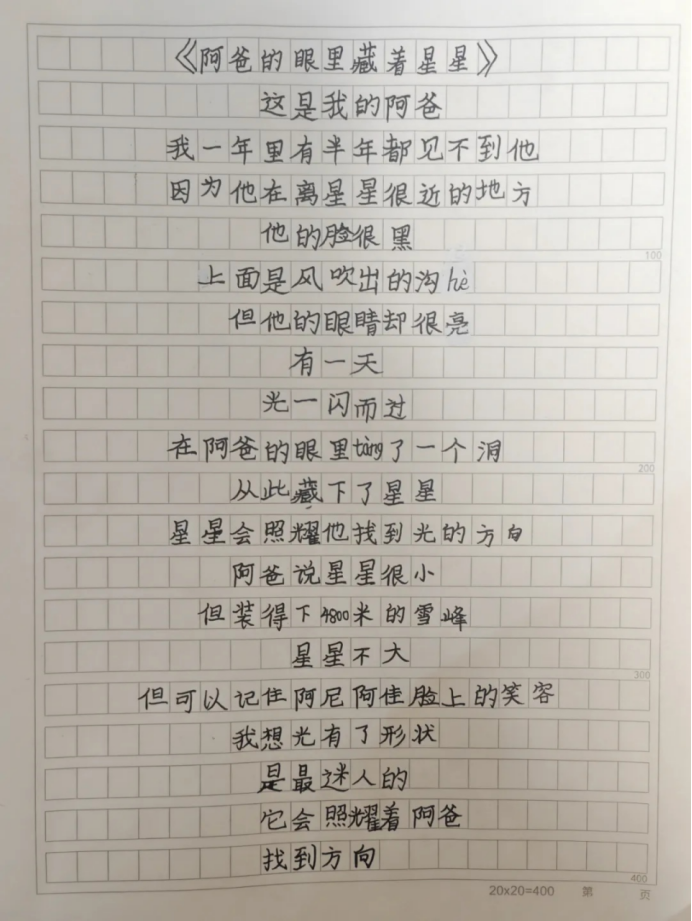 《阿爸的眼里藏着星星》
这是我的阿爸
我一年里有半年都见不到他
因为他在离星星很近的地方
他的脸很黑
100
上面是风吹出的沟hè
但他的眼睛却很亮
有一天
光一闪而过
在阿爸的眼里tàng了一个洞
200
从此藏下了星星
星星会照耀他找到光的方向
阿爸说星星很小
但装得下4800米的雪峰
星星不大
300
但可以记住阿尼阿佳脸上的笑容
我想光有了形状
是最迷人的
它会照耀着阿爸
找到方向
400
20x20=400 第 页